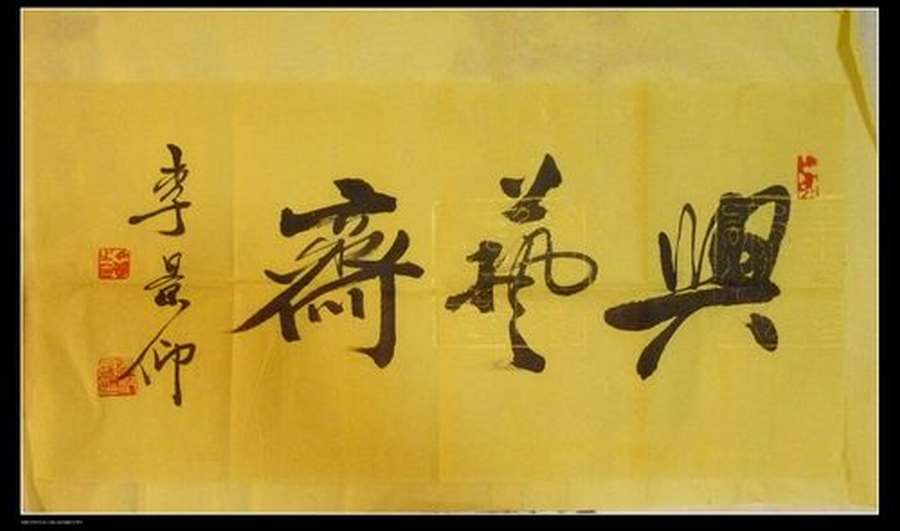 興藝齋
李景仰